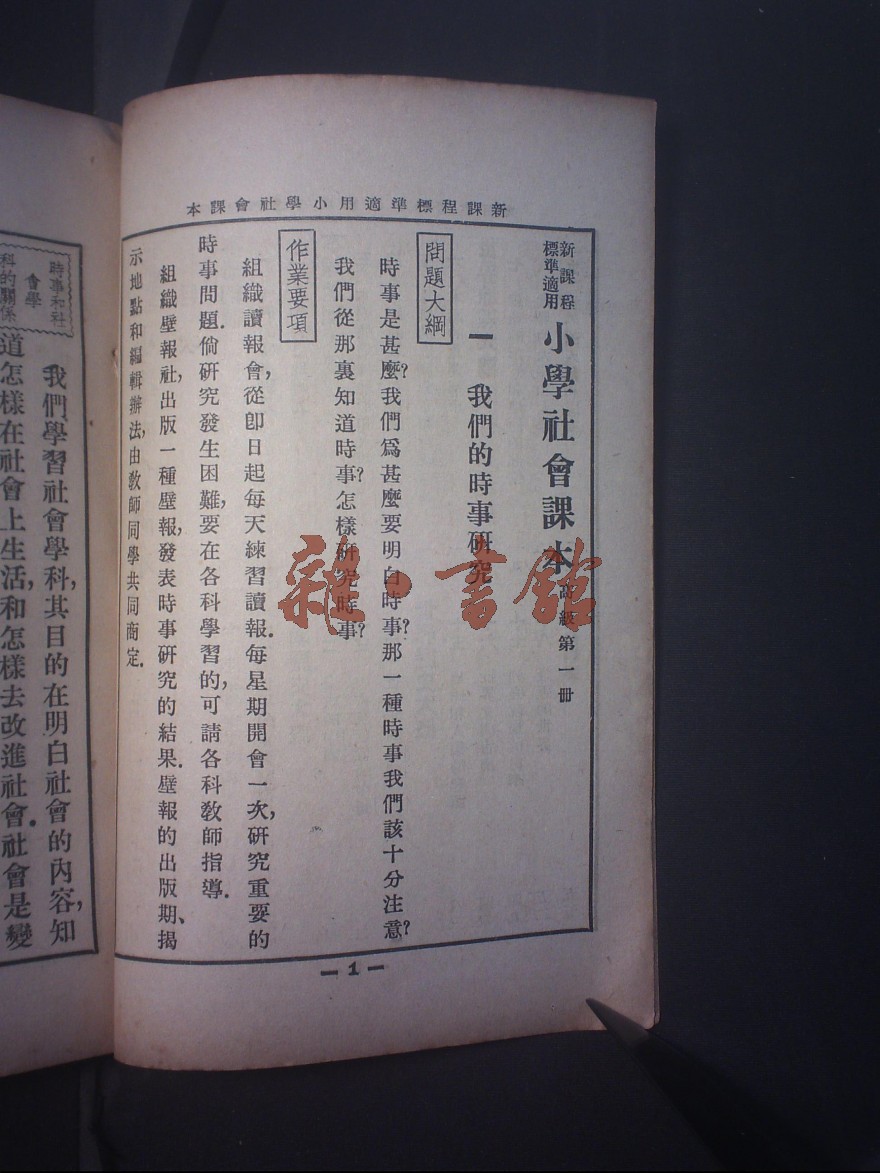 本課會社學小用適準標程課新
新課程
標準適用
小學社會課本
高級第一冊
一 我們的時事研究
問題大綱
時事是甚麼?我們爲甚麼要明白時事?那一種時事我們該十分注意?
我們從那裏知道時事?怎樣研究時事?
作業要項
組織讀報會,從卽日起每天練習讀報.每星期開會一次,研究重要的
時事問題.倘研究發生困難,要在各科學習的,可請各科敎師指導.
組織壁報社,出版一種壁報,發表時事研究的結果.壁報的出版期、揭
示地點和編輯辦法,由敎師同學共同商定.
1
時事和社
會學
科的關係
我們學習社會學科,其目的在明白社會的內容,知
道怎樣在社會上生活,和怎樣去改進社會.社會是變
雜·書館